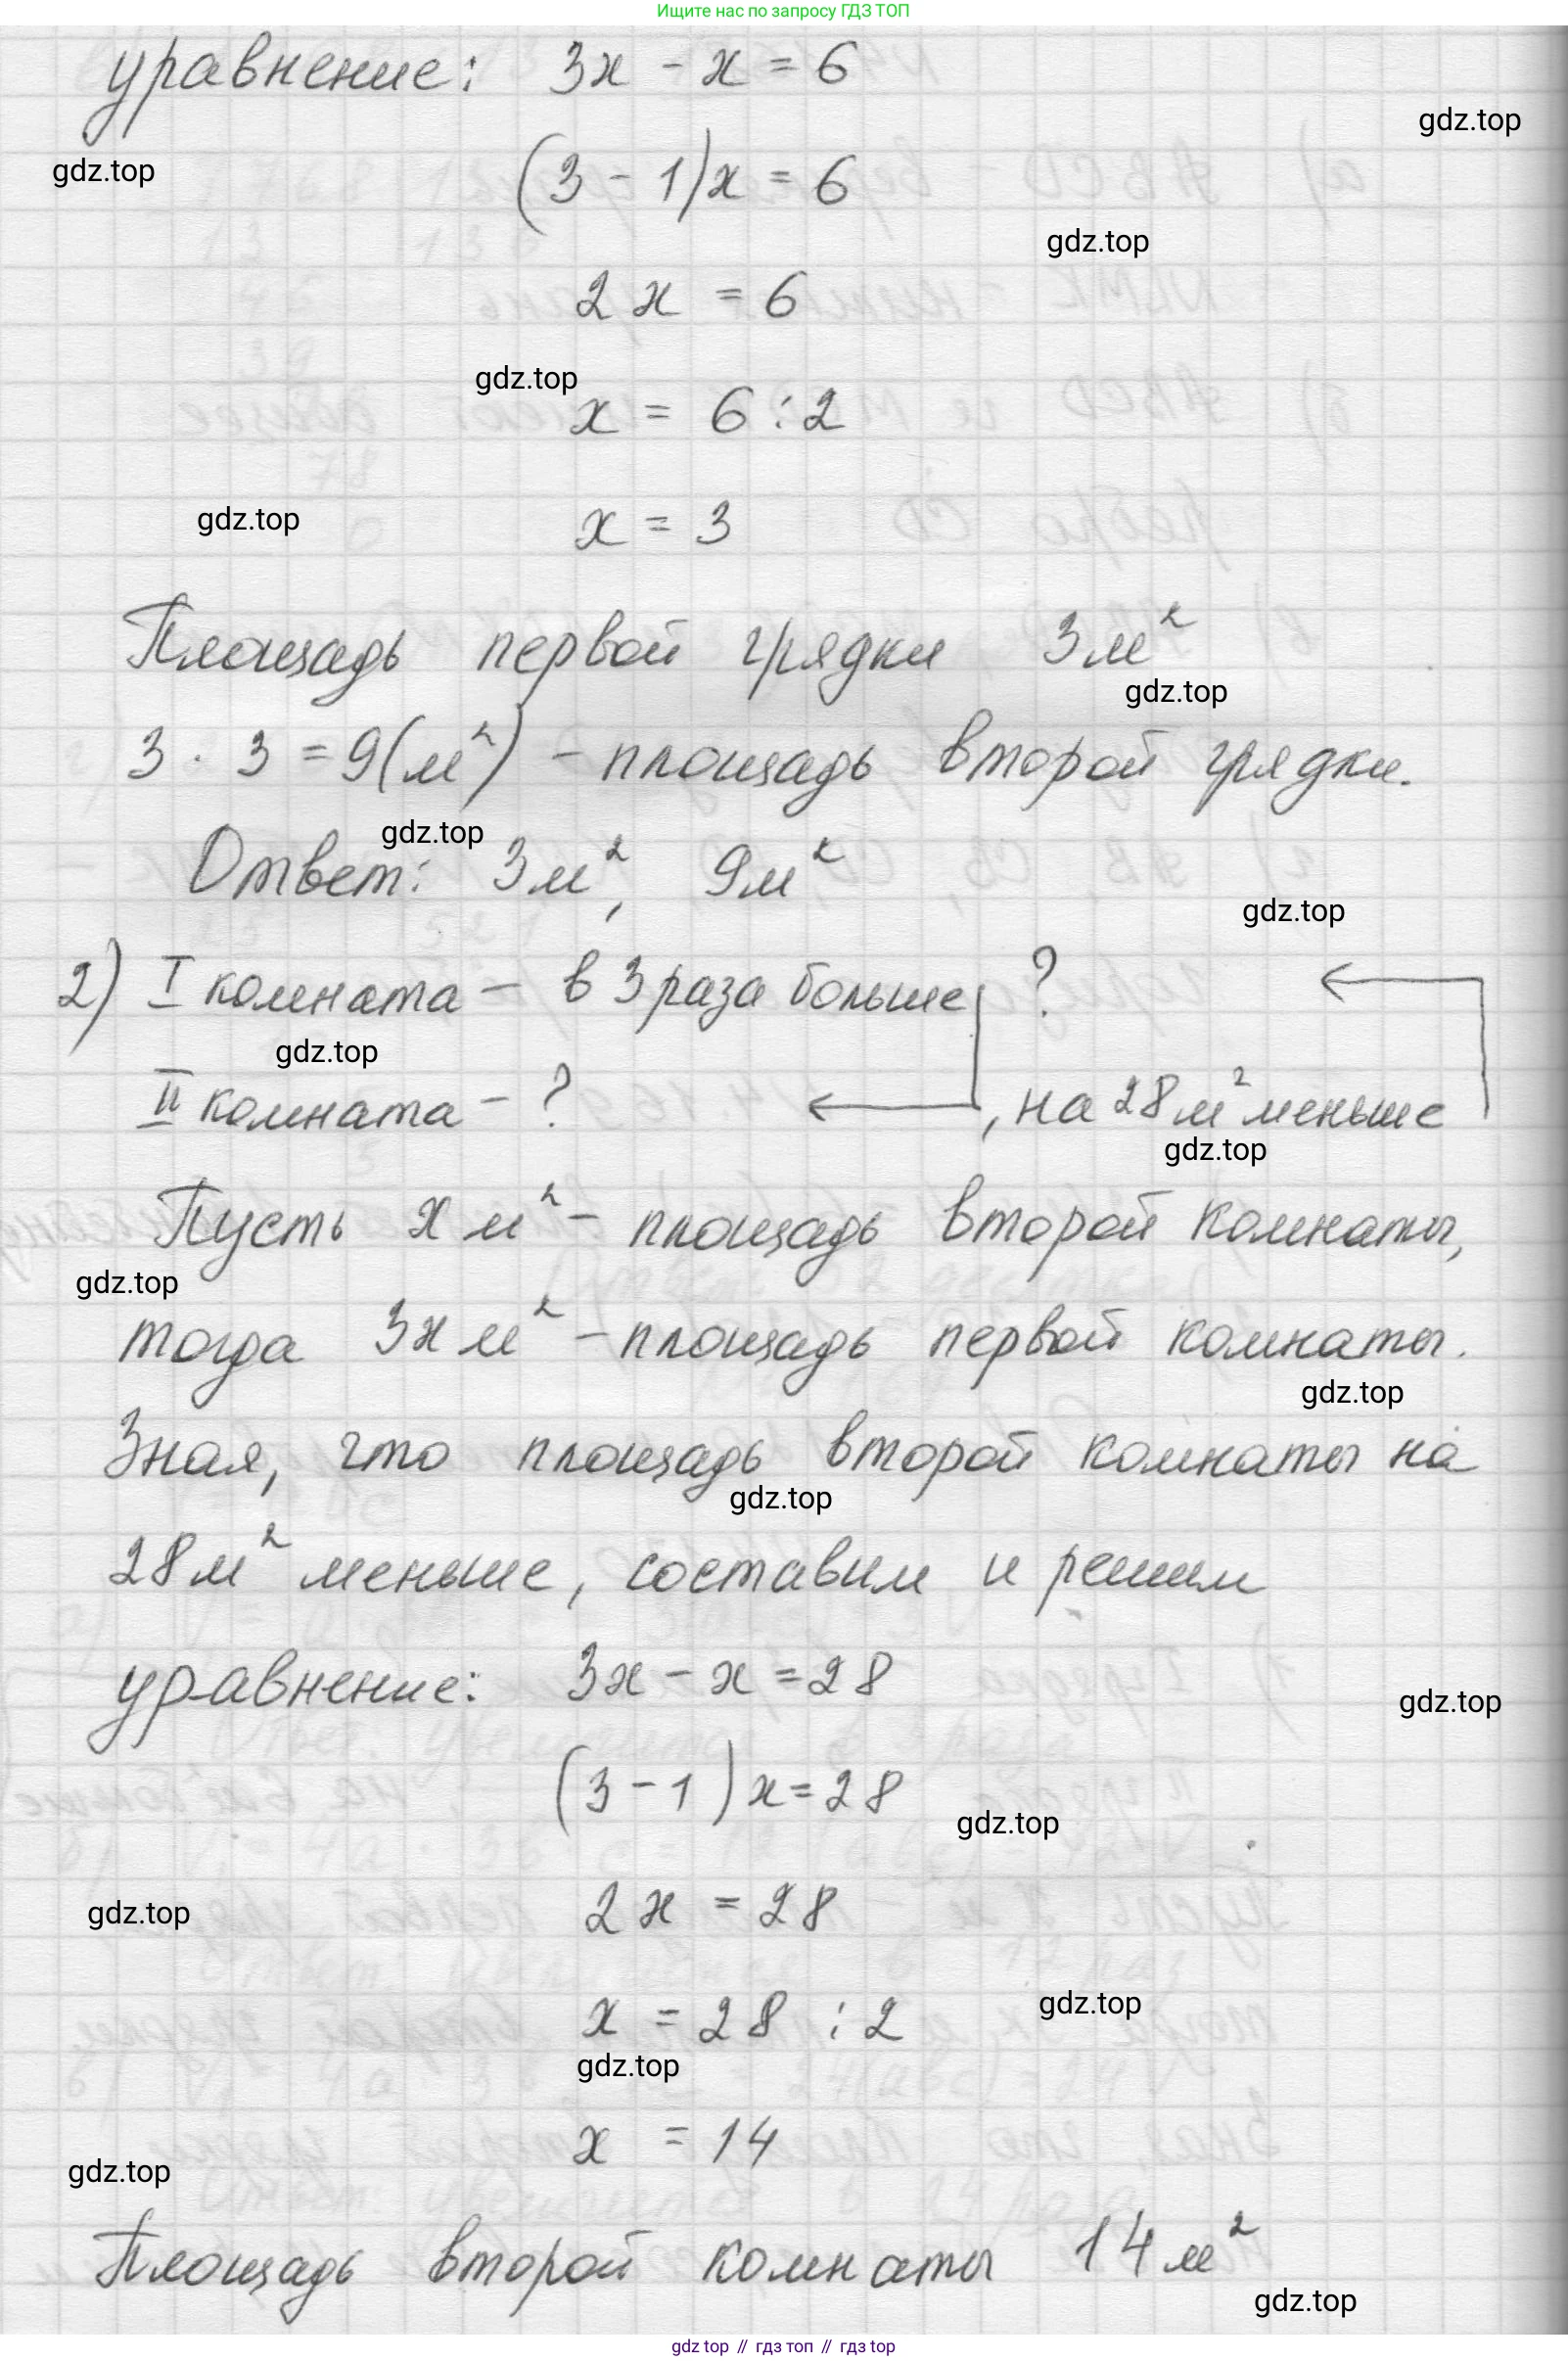 Ищите нас по запросу ГДЗ ТОП
уравнение: 3x - x = 6
gdz.top
gdz.top
(3 - 1)x = 6
gdz.top
2x = 6
gdz.top
x = 6 : 2
gdz.top
x = 3
Площадь первой грядки 3м²
gdz.top
3 · 3 = 9(м²) - площадь второй грядки.
gdz.top
Ответ: 3м², 9м²
gdz.top
2) I комната - в 3 раза больше ?
gdz.top
II комната - ? , на 28м² меньше
gdz.top
Пусть x м² - площадь второй комнаты,
gdz.top
тогда 3x м² - площадь первой комнаты.
gdz.top
Зная, что площадь второй комнаты на
gdz.top
28м² меньше, составим и решим
уравнение: 3x - x = 28
gdz.top
(3 - 1)x = 28
gdz.top
2x = 28
gdz.top
x = 28 : 2
gdz.top
gdz.top
x = 14
gdz.top
Площадь второй комнаты 14м²
gdz.top
gdz top // гдз топ // гдз top